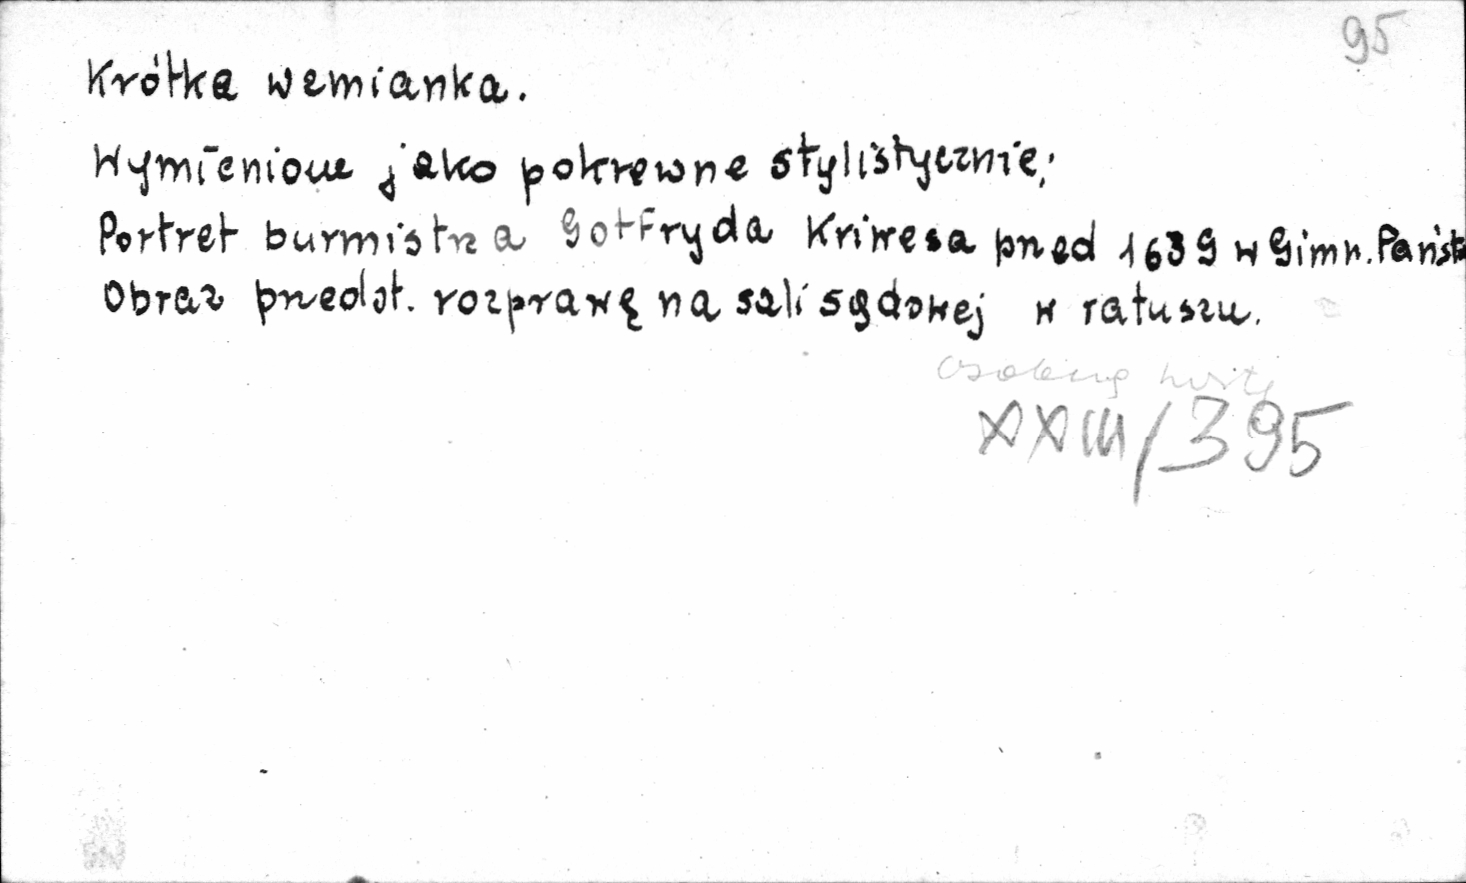 95
Krótka wzmianka.
Wymienione jako pokrewne stylistycznie;
Portret burmistrza Gotfryda Kriwesa przed 1639 w Gimn. Państ
Obraz przedst. rozprawę na sali sądowej w ratuszu.
XXIII/395